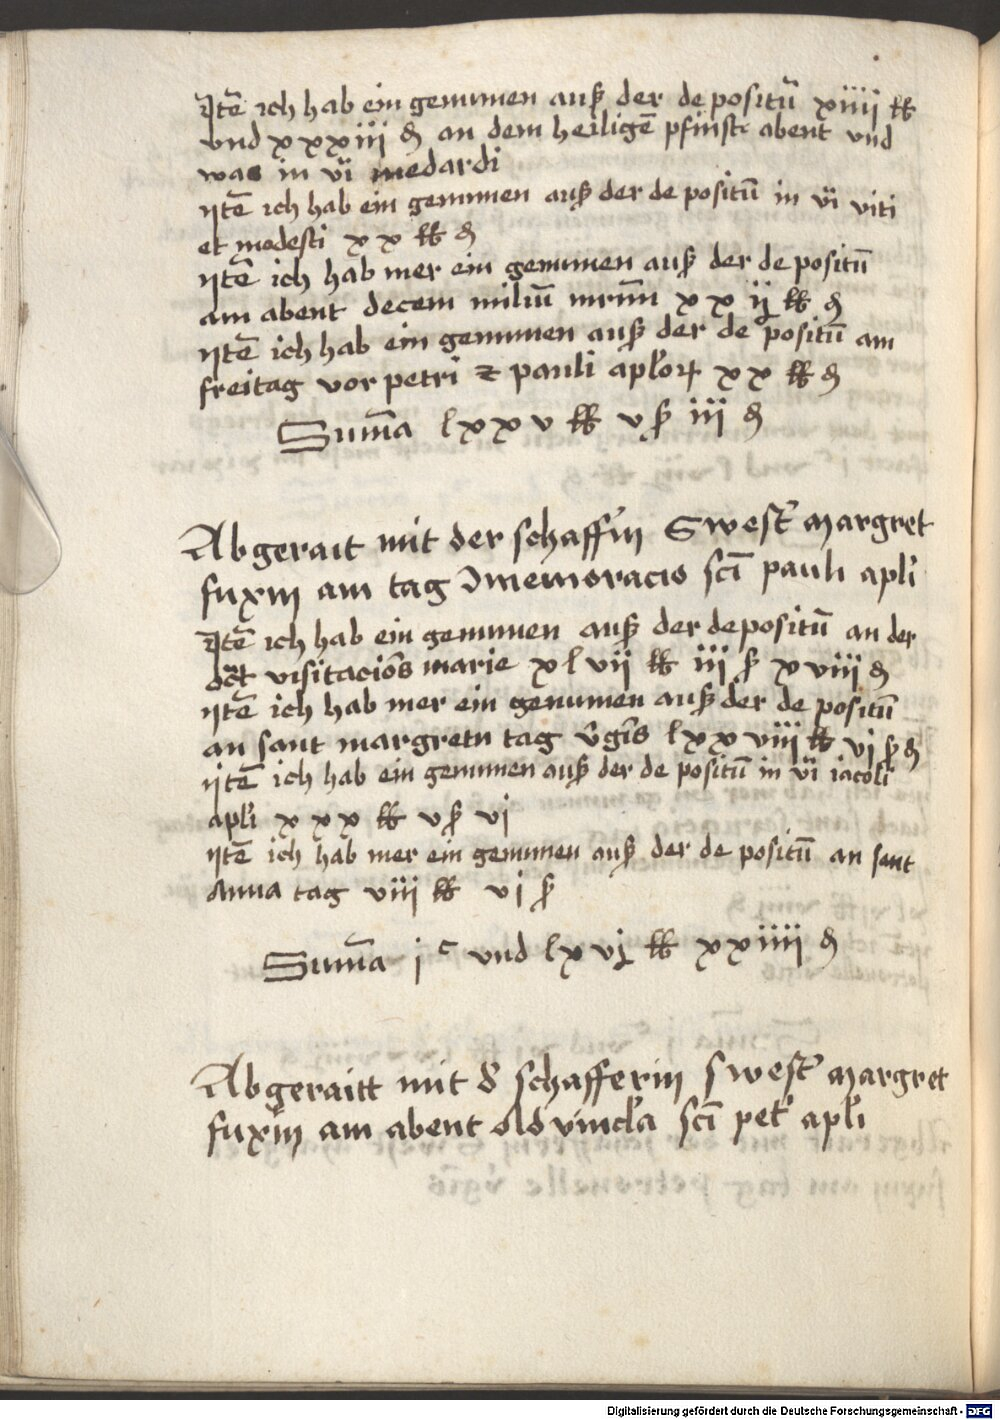 Itē ich hab ein genumen auß der de positū xiiii ℔
vnd xxxiii ₰ an dem heiligē pfinstē abent vnd
was in vī medardi
Itē ich hab ein genumen auß der de positū in vī viti
et modesti xx ℔ ₰
Itē ich hab mer ein genumen auß der de positū
am abent decem miliū mrūm xx ij ℔ ₰
Itē ich hab ein genumen auß der de positū am
freitag vor petri ⁊ pauli aplʼoꝝ xx ℔ ₰
Sum̄a lxxv ℔ v ß iii ₰
Abgerait mit der schaff'in Swest' margret
fuxin am tag Ɔmemoracio scī pauli apl'i
Itē ich hab ein genumen auß der depositū an der
oct̄ visitaciōs marie xlvii ℔ iii ß xviii ₰
Itē ich hab mer ein genumen auß der de positū
an sant margretn tag v̄gīs lxxviiii ℔ vi ß ₰
Itē ich hab ein genumen auß der de positū in vī iacobi
apl'i xxx ℔ v ß vi
Itē ich hab mer ein genumen auß der de positū an sant
Anna tag viii ℔ vj ß
Sum̄a jᶜ vnd lxvj ℔ xxiiii ₰
Abgeraitt mit d' schafferin swest' margret
fuxin am abent ad vincl'a scī pet' apl'i
Digitalisierung gefördert durch die Deutsche Forschungsgemeinschaft - DFG